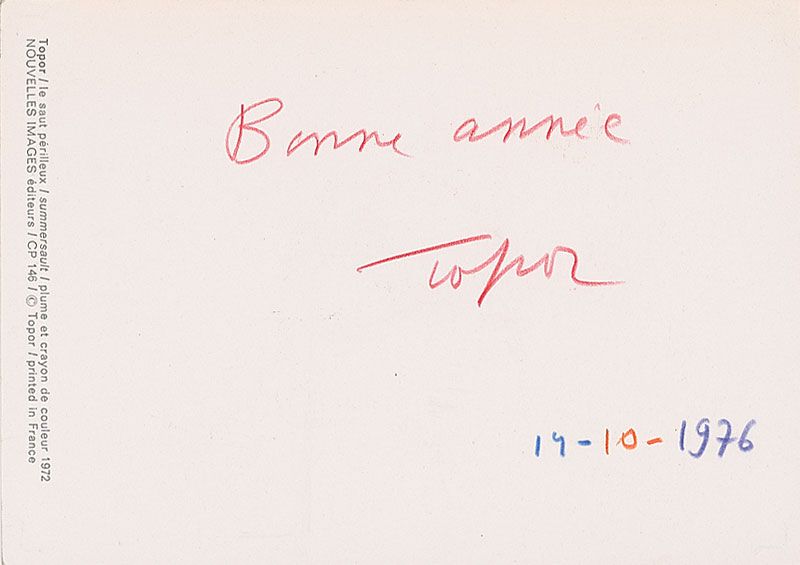 Topor / le saut périlleux / summersault / plume et crayon de couleur 1972
NOUVELLES IMAGES éditeurs / CP 146 / © Topor / printed in France
Bonne année
Topor
14-10-1976